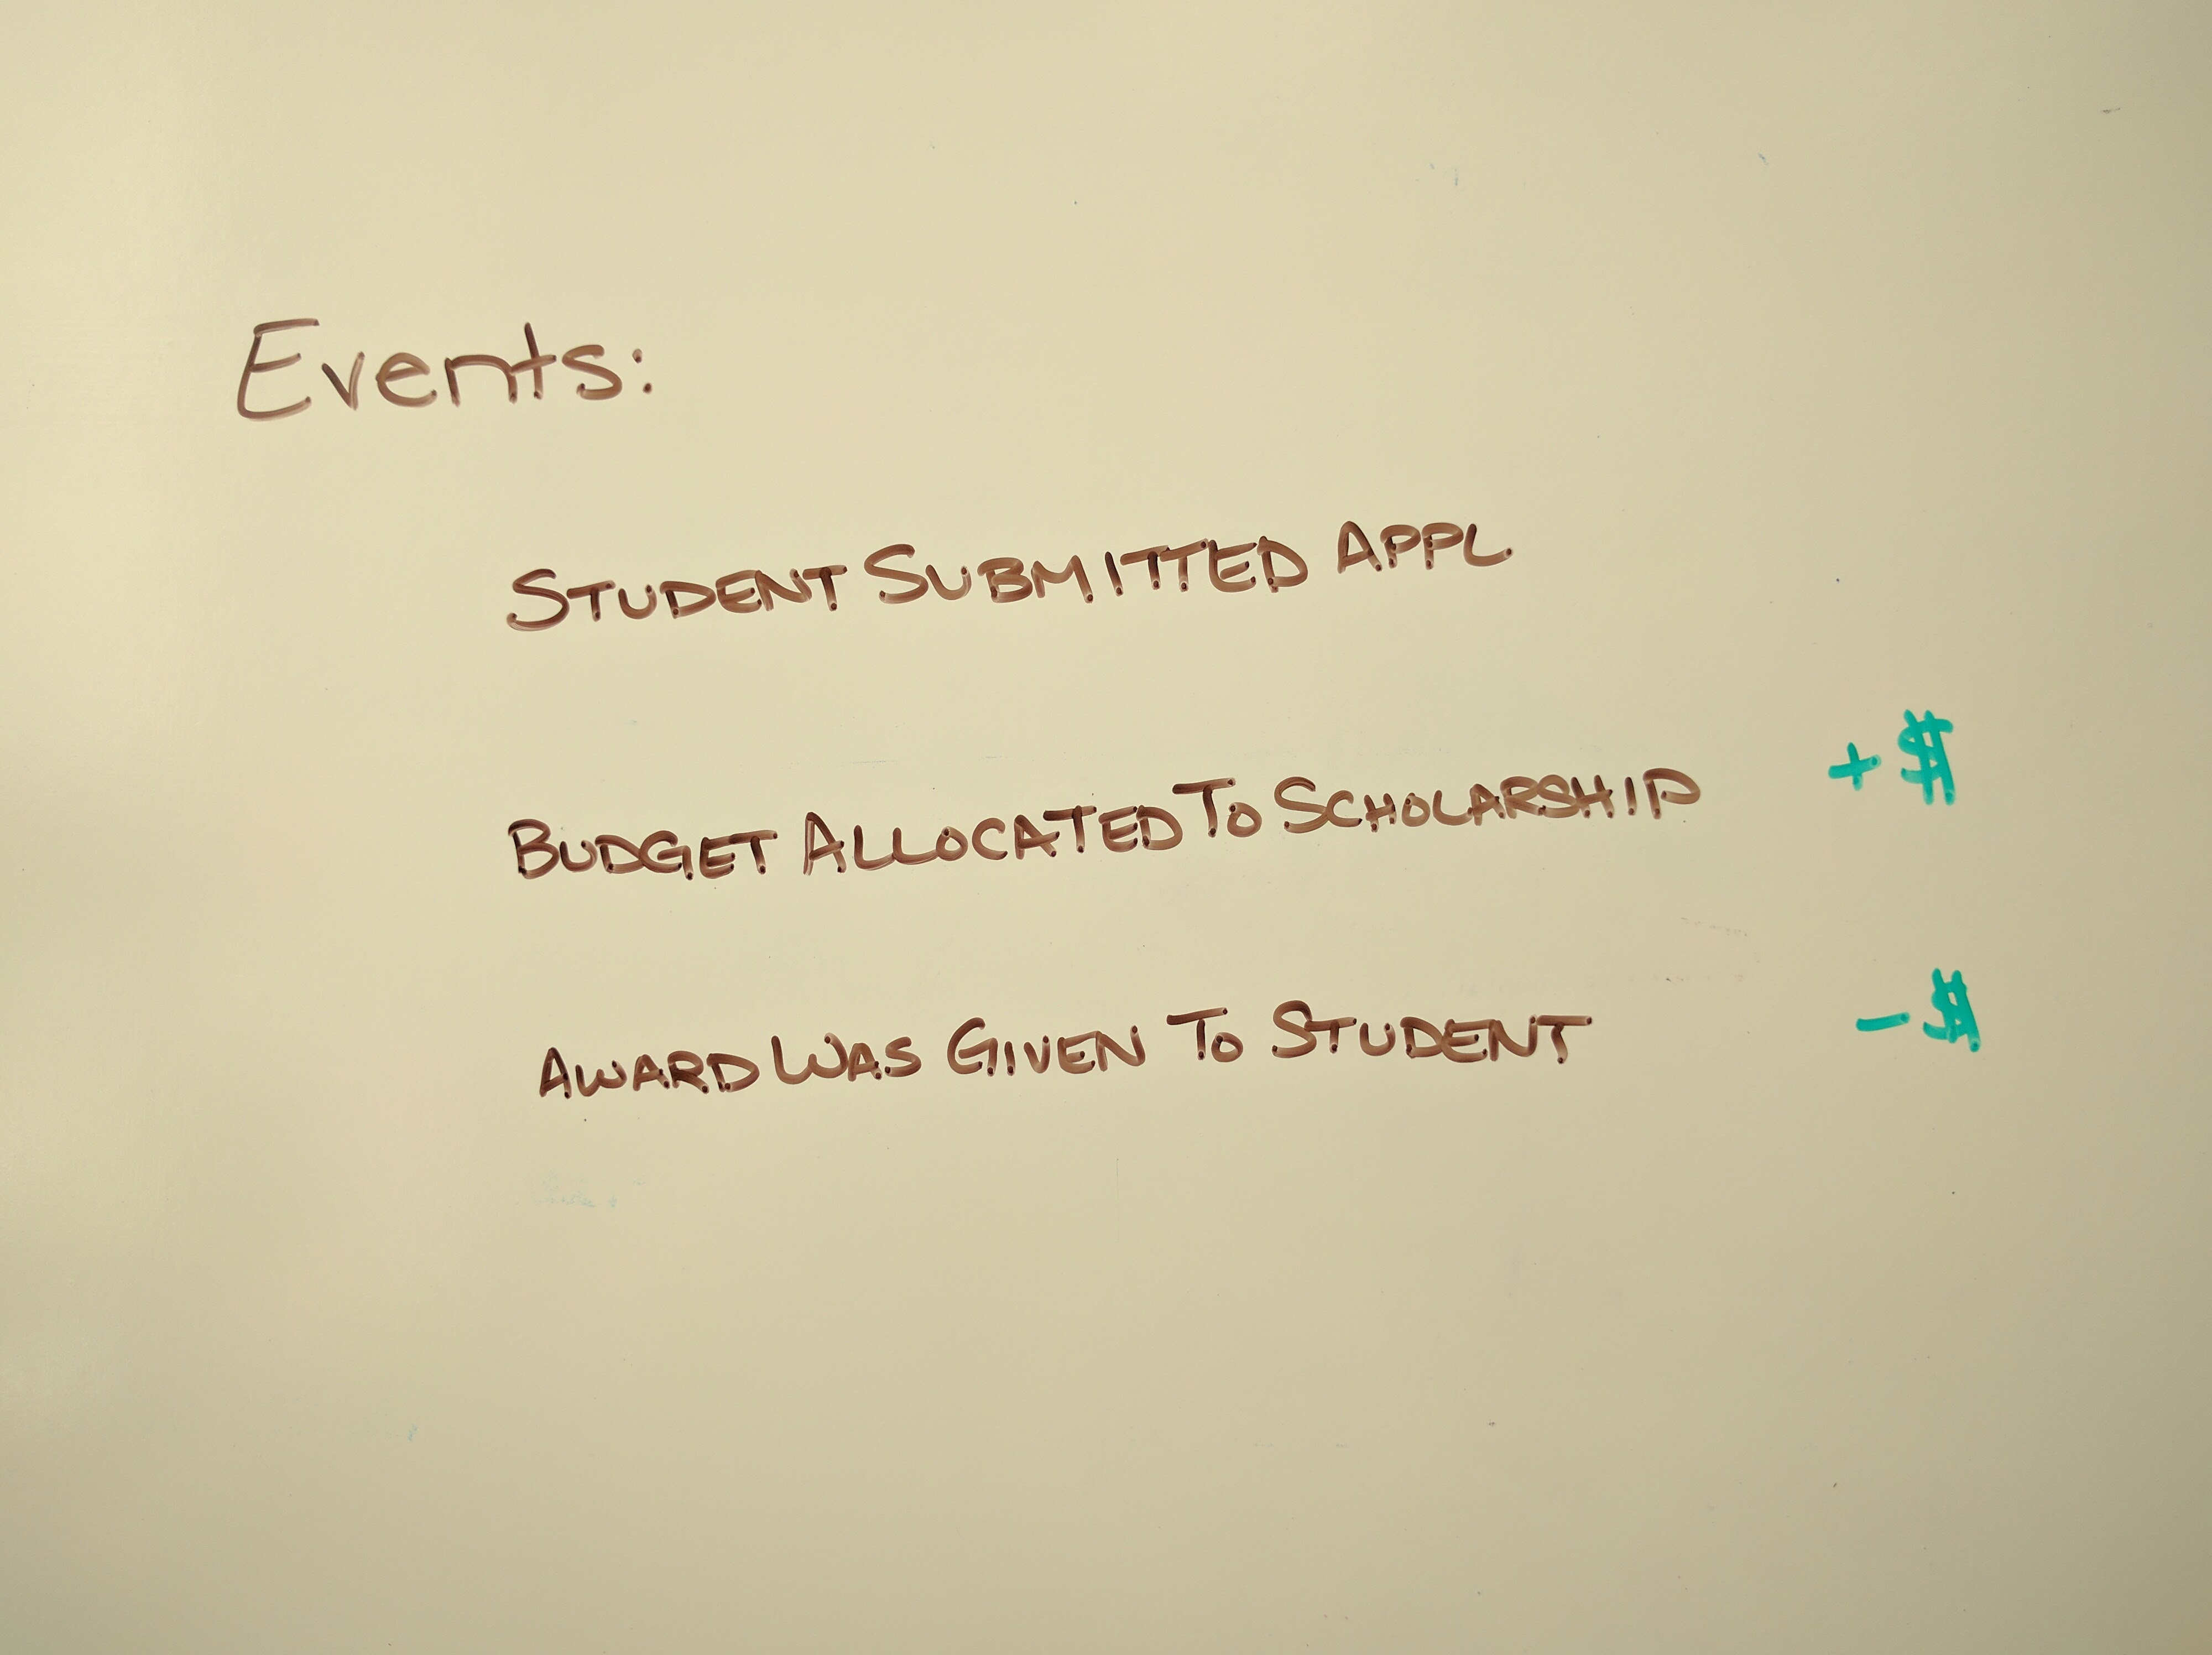 Events:
STUDENT SUBMITTED APPL.
BUDGET ALLOCATED TO SCHOLARSHIP +$
AWARD WAS GIVEN TO STUDENT -$